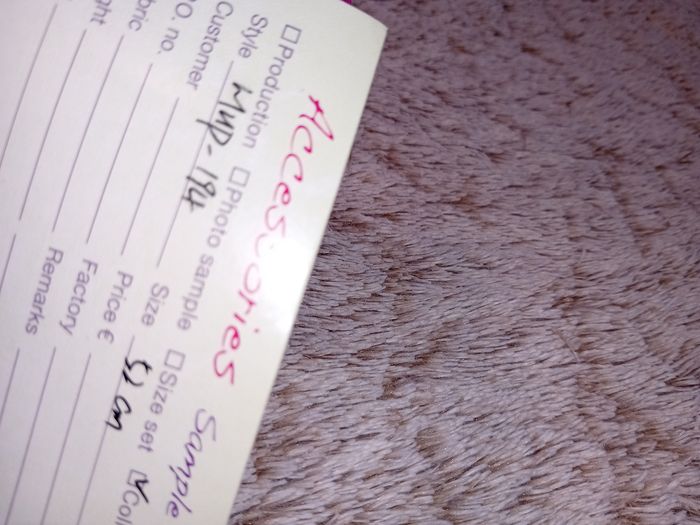 Accessories Sample
☐ Production ☐ Photo sample ☐ Size set ☑ Coll
Style MWP-194 Size 52 cm
Customer Price €
O. no. Factory
bric Remarks
ght